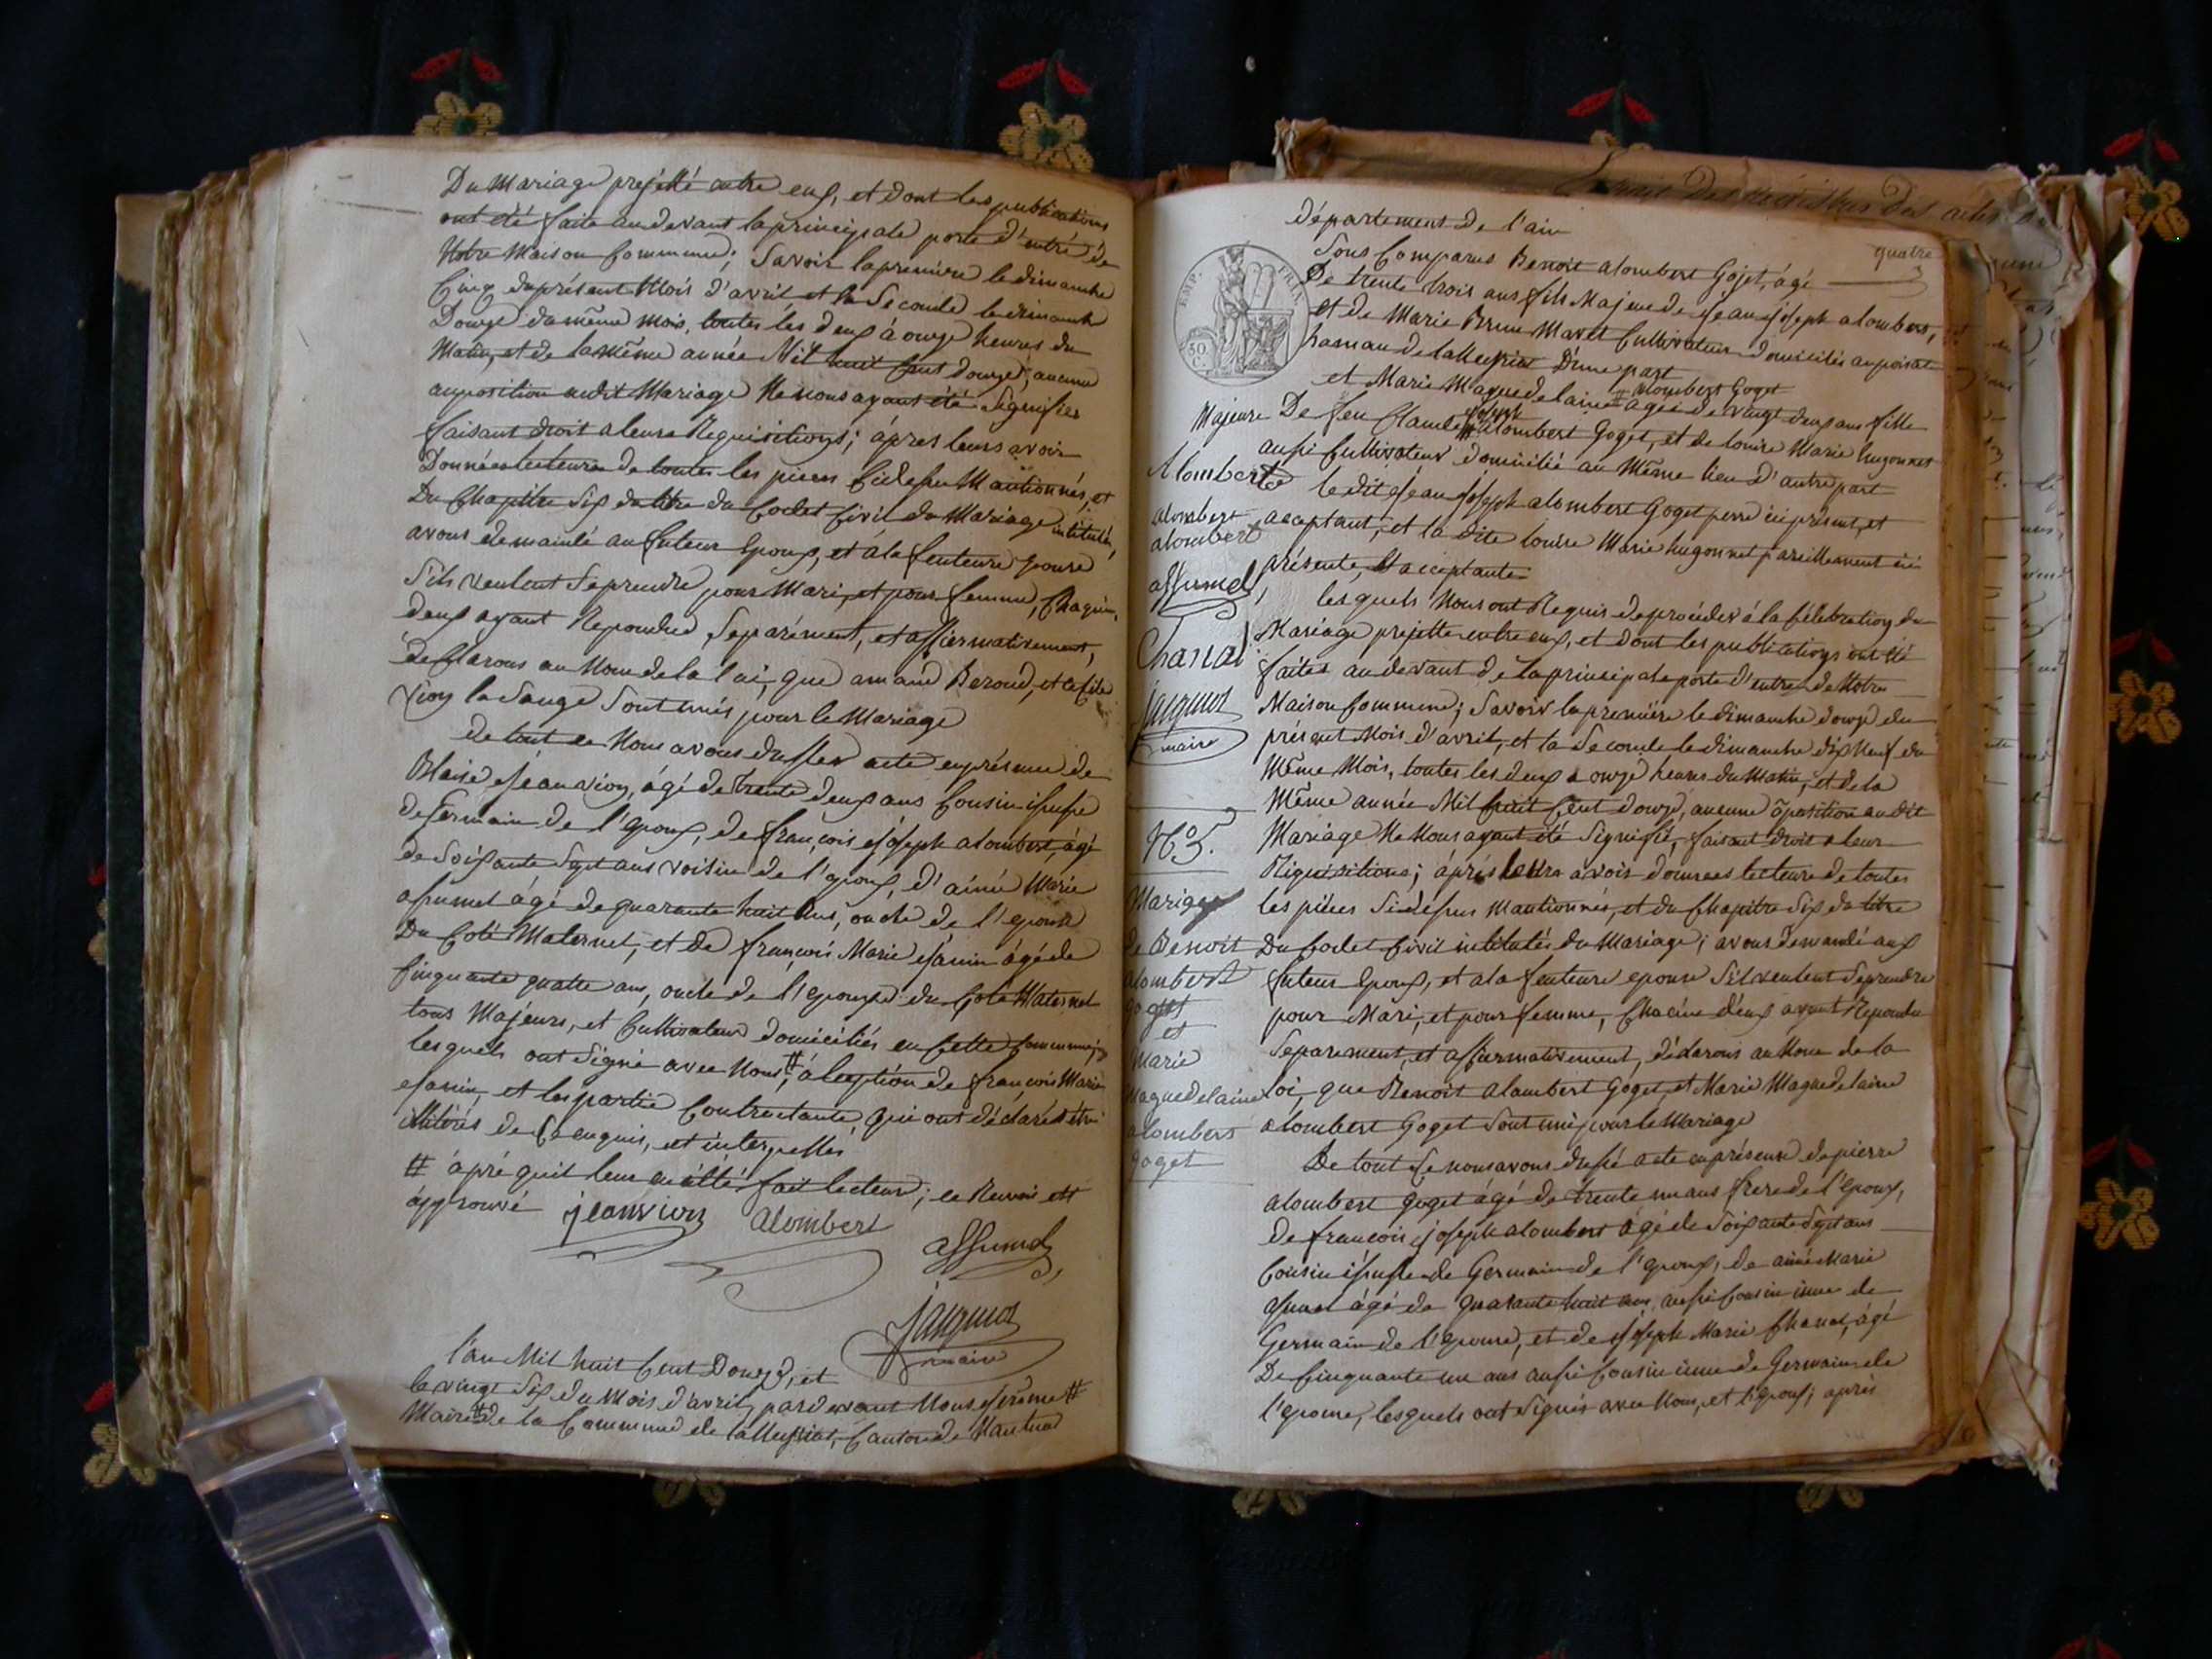 Du Mariage projetté entre eux, et dont les publications
ont été faite au devant la principale porte d'entré de
Notre Maison Commune; Savoir la première le dimanche
Cinq du présent Mois d'avril et la Seconde le dimanche
Douze du même mois, toutes les deux à onze heures du
Matin, et de la même année Mil huit Cent douze; aucune
opposition audit Mariage Ne nous ayant été Signifiés
faisant droit a leurs Requisitions; àpres leurs avoir
Donnée lecteure de toutes les pieces Cidessu Mantionnés, et
Du Chapitre Six du titre du Codet Civil du Mariage intitulé,
avons demandé au futeur Epoux, et à la futeure Epouse
S'ils veulent Seprendre pour Mari, et pour femme, Chaqun
deux ayant Repondue Separément, et affiermativement,
declarons au Nom de la loi, que amand Beroud, et
Vion la Sauge Sont unis pour le Mariage
de tout ce Nous avons dresser acte en présence de
Blaise Jeanvion, âgé de trente deux ans Cousin issusse
de Germain de l'Epoux, de françois Joseph alombert, âgé
de Soixante Sept ans voisin de l'Epoux, d'aimé Marie
assumel âgé de quarante huit ans, oncle de l'Epouse
Du Coté Maternel, et de françois Marie Janin âgé de
Cinquante quatre ans, oncle de l'Epouse du Coté Maternel
tous Majeurs, et Cultivateur domiciliés en Cette Commune;
lesquels ont Signé avec Nous #, à l'exeption de françois Marie
Janin, et les partie Contractante, qui ont déclarés être
illitérés de Ce enquis, et interpellés
# âpré quil leur en a été fait lecteur; ce Renvoi est
approuvé jeanvion alombert
assumel
jacquiot
maire
l'an Mil huit Cent Douze, et
le vingt Six du Mois d'avril, par devant Nous Jérôme #
Maire # de la Commune de lalleyriat, Canton de Nantua
département de l'ain
quatre
EMP. FRA.
50 C.
Sons Comparus Benoit alombert Gojet, âgé
De trente trois ans fils Majeur de Jean Joseph alombert,
et de Marie Perrine Mavet Cultivateur domiciliés au poisat
hamau de lalleyriat D'une part
et Marie Maguedelaine # alombert Goget agée de vingt deux ans fille
Majeure De feu Claude Joseph # alombert Goget, et de louise Marie hugonnet
aussi Cultivateur domicilié au Même lieu D'autre part
le dit Jean Joseph alombert Goget perre ici présent, et
acceptant, et la dite louise Marie hugonnet pareillement ici
présente, et acceptante
lesquels Nous ont Requis de procéder à la Célébration du
Mariage projetté entre eux, et dont les publications ont été
faites au devant de la principale porte d'entré de Notre
Maison Commune; Savoir la première le dimanche douze du
présent Mois d'avril, et la Seconde le dimanche dix Neuf du
Même Mois, toutes les deux a onze heures du Matin, et de la
Même année Mil huit Cent douze, aucune oposition au dit
Mariage Ne Nous ayant été Signifié, faisant droit a leur
Riquisitions; âprés leurs avoir données lecteure de toutes
les pièces Sidéssus Mantionnés, et du Chapitre Six du titre
Du Codet Civil intitulés du Mariage; avons Demandé aux
futeur Epoux, et a la feuteure epouse S'il veulent Seprendre
pour Mari, et pour femme, Chacune d'eux ayant Repondu
Separement, et affiermativement, déclarons au Nom de la
loi, que Benoit alombert Goget, et Marie Maguedelaine
alombert Goget Sont unis pour le Mariage
De tout Ce nous avons dressé acte en présence de pierre
alombert goget âgé de trente un ans frere de l'Epoux,
de francois joseph alombert âgé de Soixante Sept ans
Cousin issusse de Germain de l'Epoux, de aimé Marie
assumel âgé de quarante huit ans, aussi Cousin issue de
Germain de l'épouse, et de Joseph Marie Chanal, âgé
De Cinquante un ans aussi Cousin issue de Germain de
l'epouse, lesquels ont Signés avec Nous, et l'Epoux; après
Alombert
alombert
alombert
assumel
Chanal
jacquiot
maire
N° 5.
Mariage
de Benoit
alombert
goget
et
Marie
Maguedelaine
alombert
goget